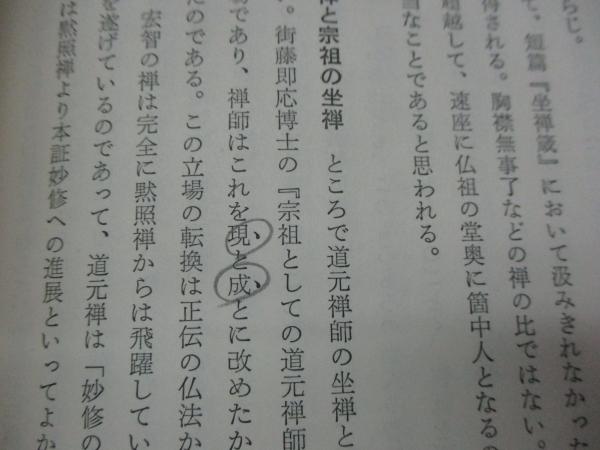 らじ。
て、短篇『坐禅箴』において汲みきれなかった
得される。胸襟無事了などの禅の比ではない。
超越して、速座に仏祖の堂奥に箇中人となるの
当なことであると思われる。
禅と宗祖の坐禅　ところで道元禅師の坐禅と
。衛藤即応博士の『宗祖としての道元禅師
場であり、禅師はこれを現と成とに改めたか
たのである。この立場の転換は正伝の仏法か
宏智の禅は完全に黙照禅からは飛躍してい
を遂げているのであって、道元禅は「妙修の
は黙照禅より本証妙修への進展といってよか